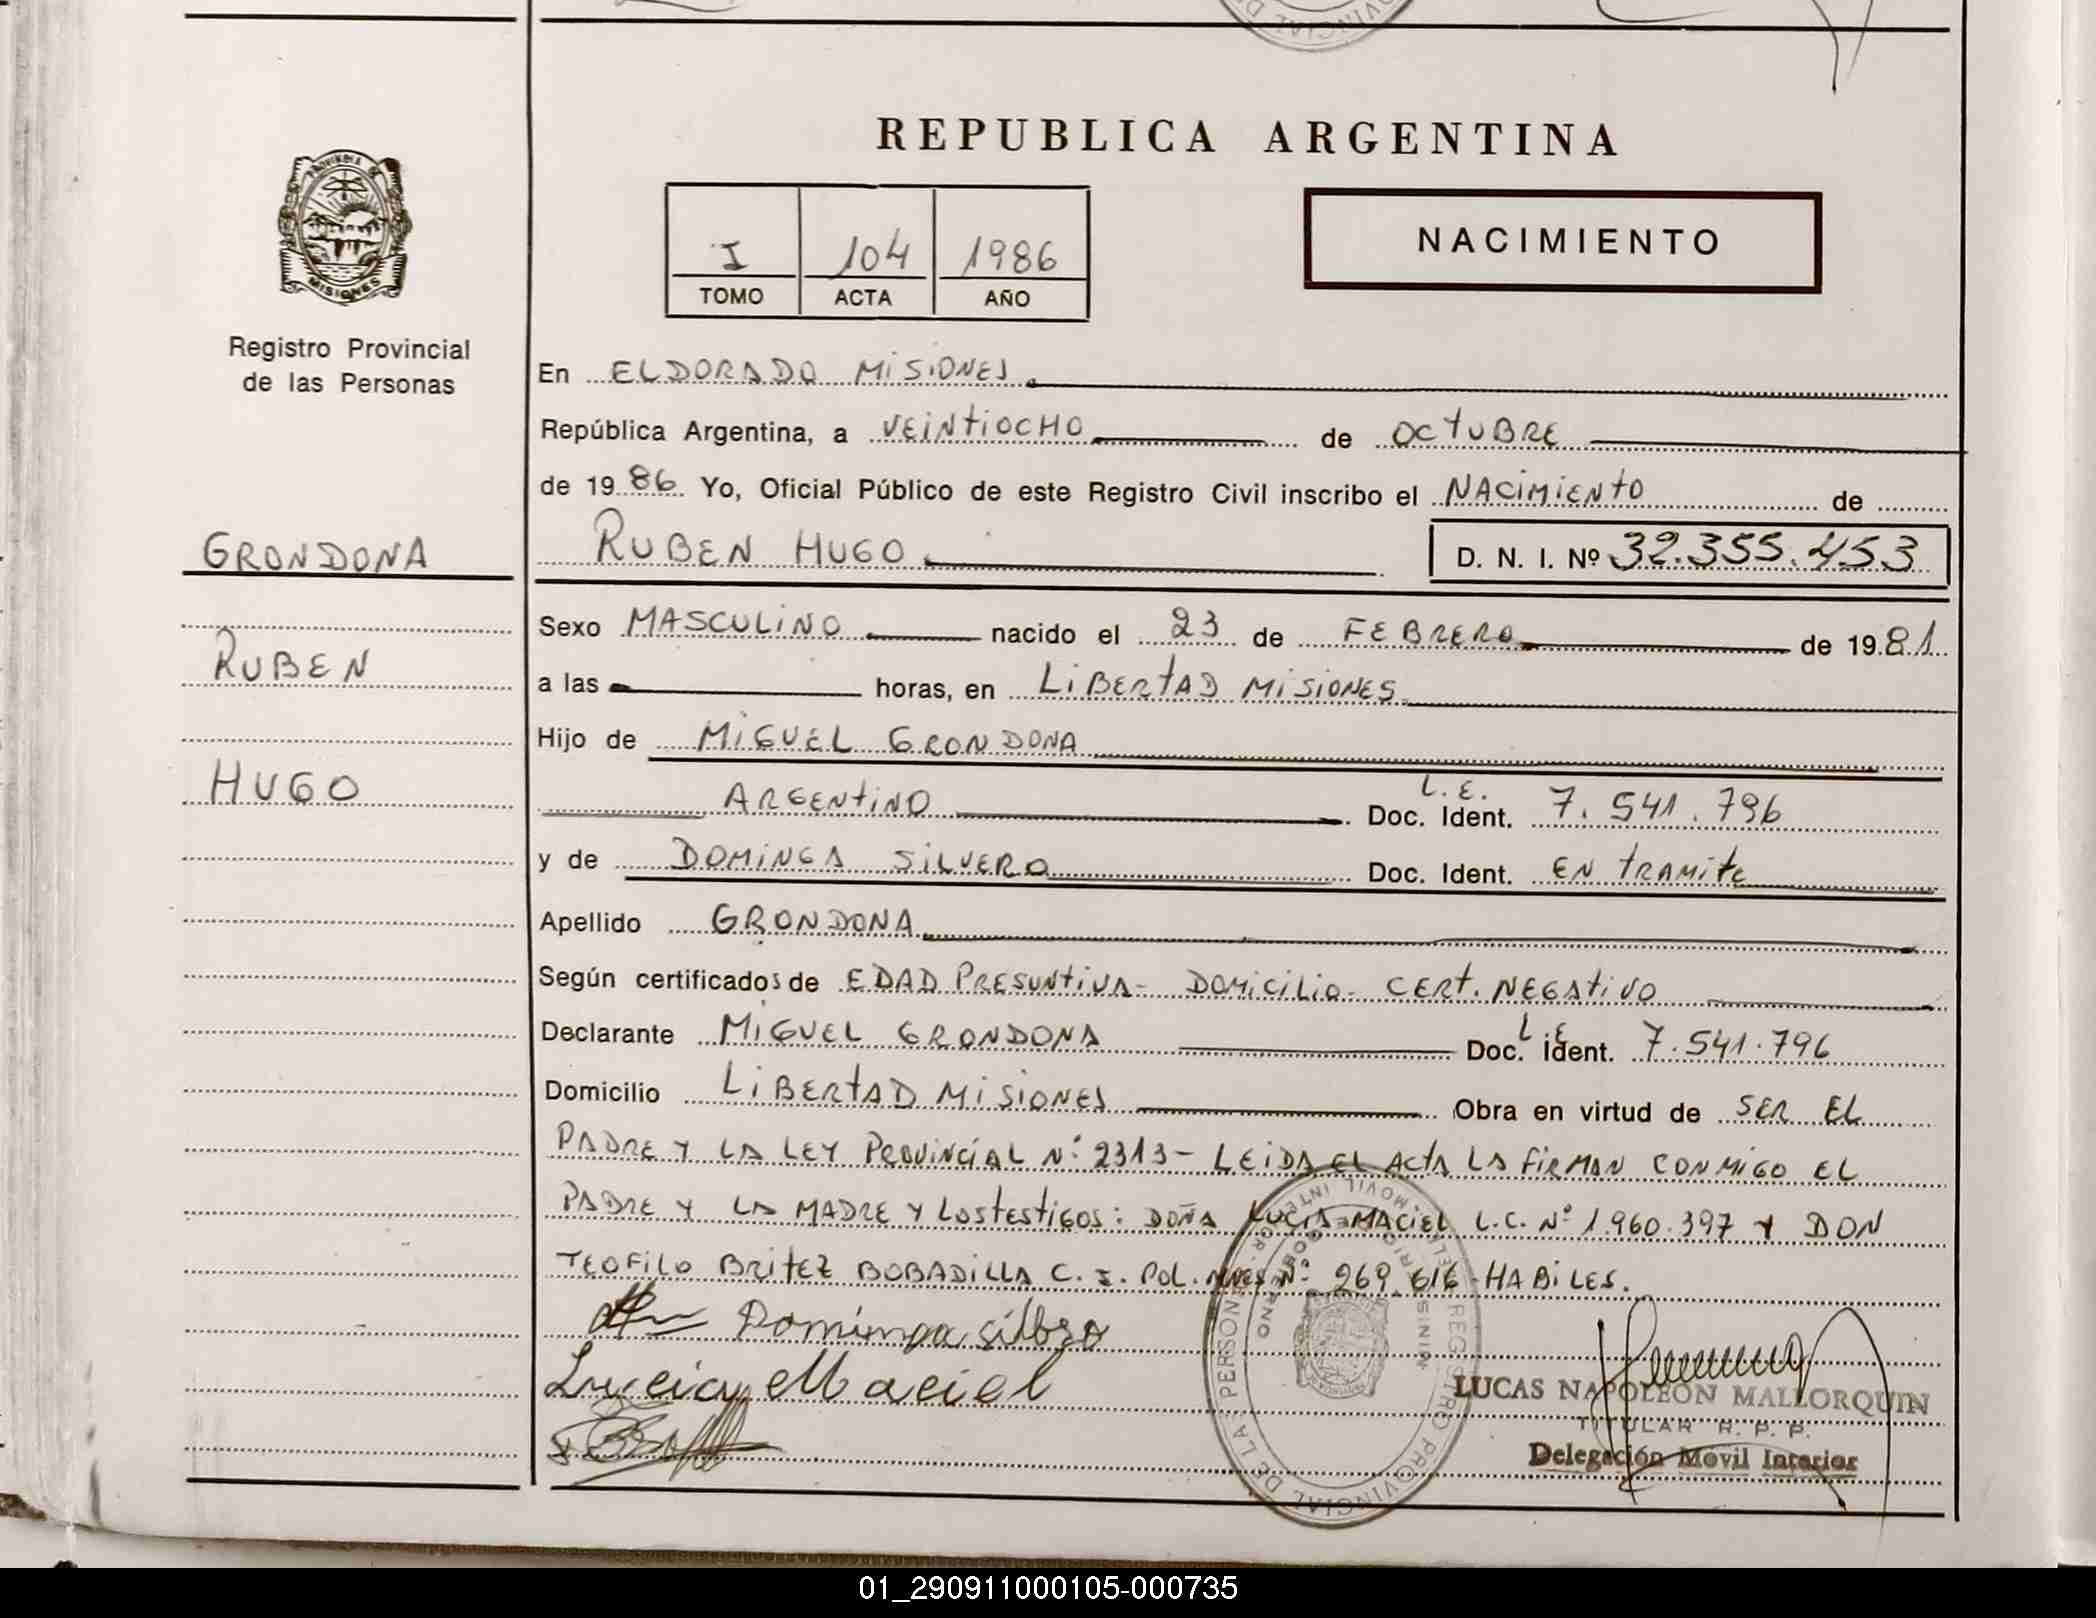 REPUBLICA ARGENTINA
PROVINCIA DE
MISIONES
Registro Provincial
de las Personas
I 104 1986
TOMO ACTA AÑO
NACIMIENTO
En ELDORADO MISIONES
República Argentina, a VEINTIOCHO de OCTUBRE
de 1986 Yo, Oficial Público de este Registro Civil inscribo el NACIMIENTO de
GRONDONA
RUBEN HUGO D. N. I. Nº 32.355.453
Sexo MASCULINO nacido el 23 de FEBRERO de 1981
RUBEN
a las horas, en LIBERTAD MISIONES
Hijo de MIGUEL GRONDONA
HUGO
ARGENTINO L.E. Doc. Ident. 7.541.796
y de DOMINGA SILVERO Doc. Ident. EN TRAMITE
Apellido GRONDONA
Según certificados de EDAD PRESUNTIVA- DOMICILIO- CERT. NEGATIVO
Declarante MIGUEL GRONDONA L.E. Doc. Ident. 7.541.796
Domicilio LIBERTAD MISIONES Obra en virtud de SER EL
PADRE Y LA LEY PROVINCIAL Nº 2313- LEIDA EL ACTA LA FIRMAN CONMIGO EL
PADRE Y LA MADRE Y LOS TESTIGOS: DOÑA LUCIA MACIEL L.C. Nº 1.960.397 Y DON
TEOFILO BRITEZ BOBADILLA C. I. POL. MNES Nº 269.616 - HABILES.
Dominga silbero
Lucia Maciel
REGISTRO PROVINCIAL DE LAS PERSONAS
LUCAS NAPOLEON MALLORQUIN
TITULAR R. P. P.
Delegación Movil Interior
01_290911000105-000735